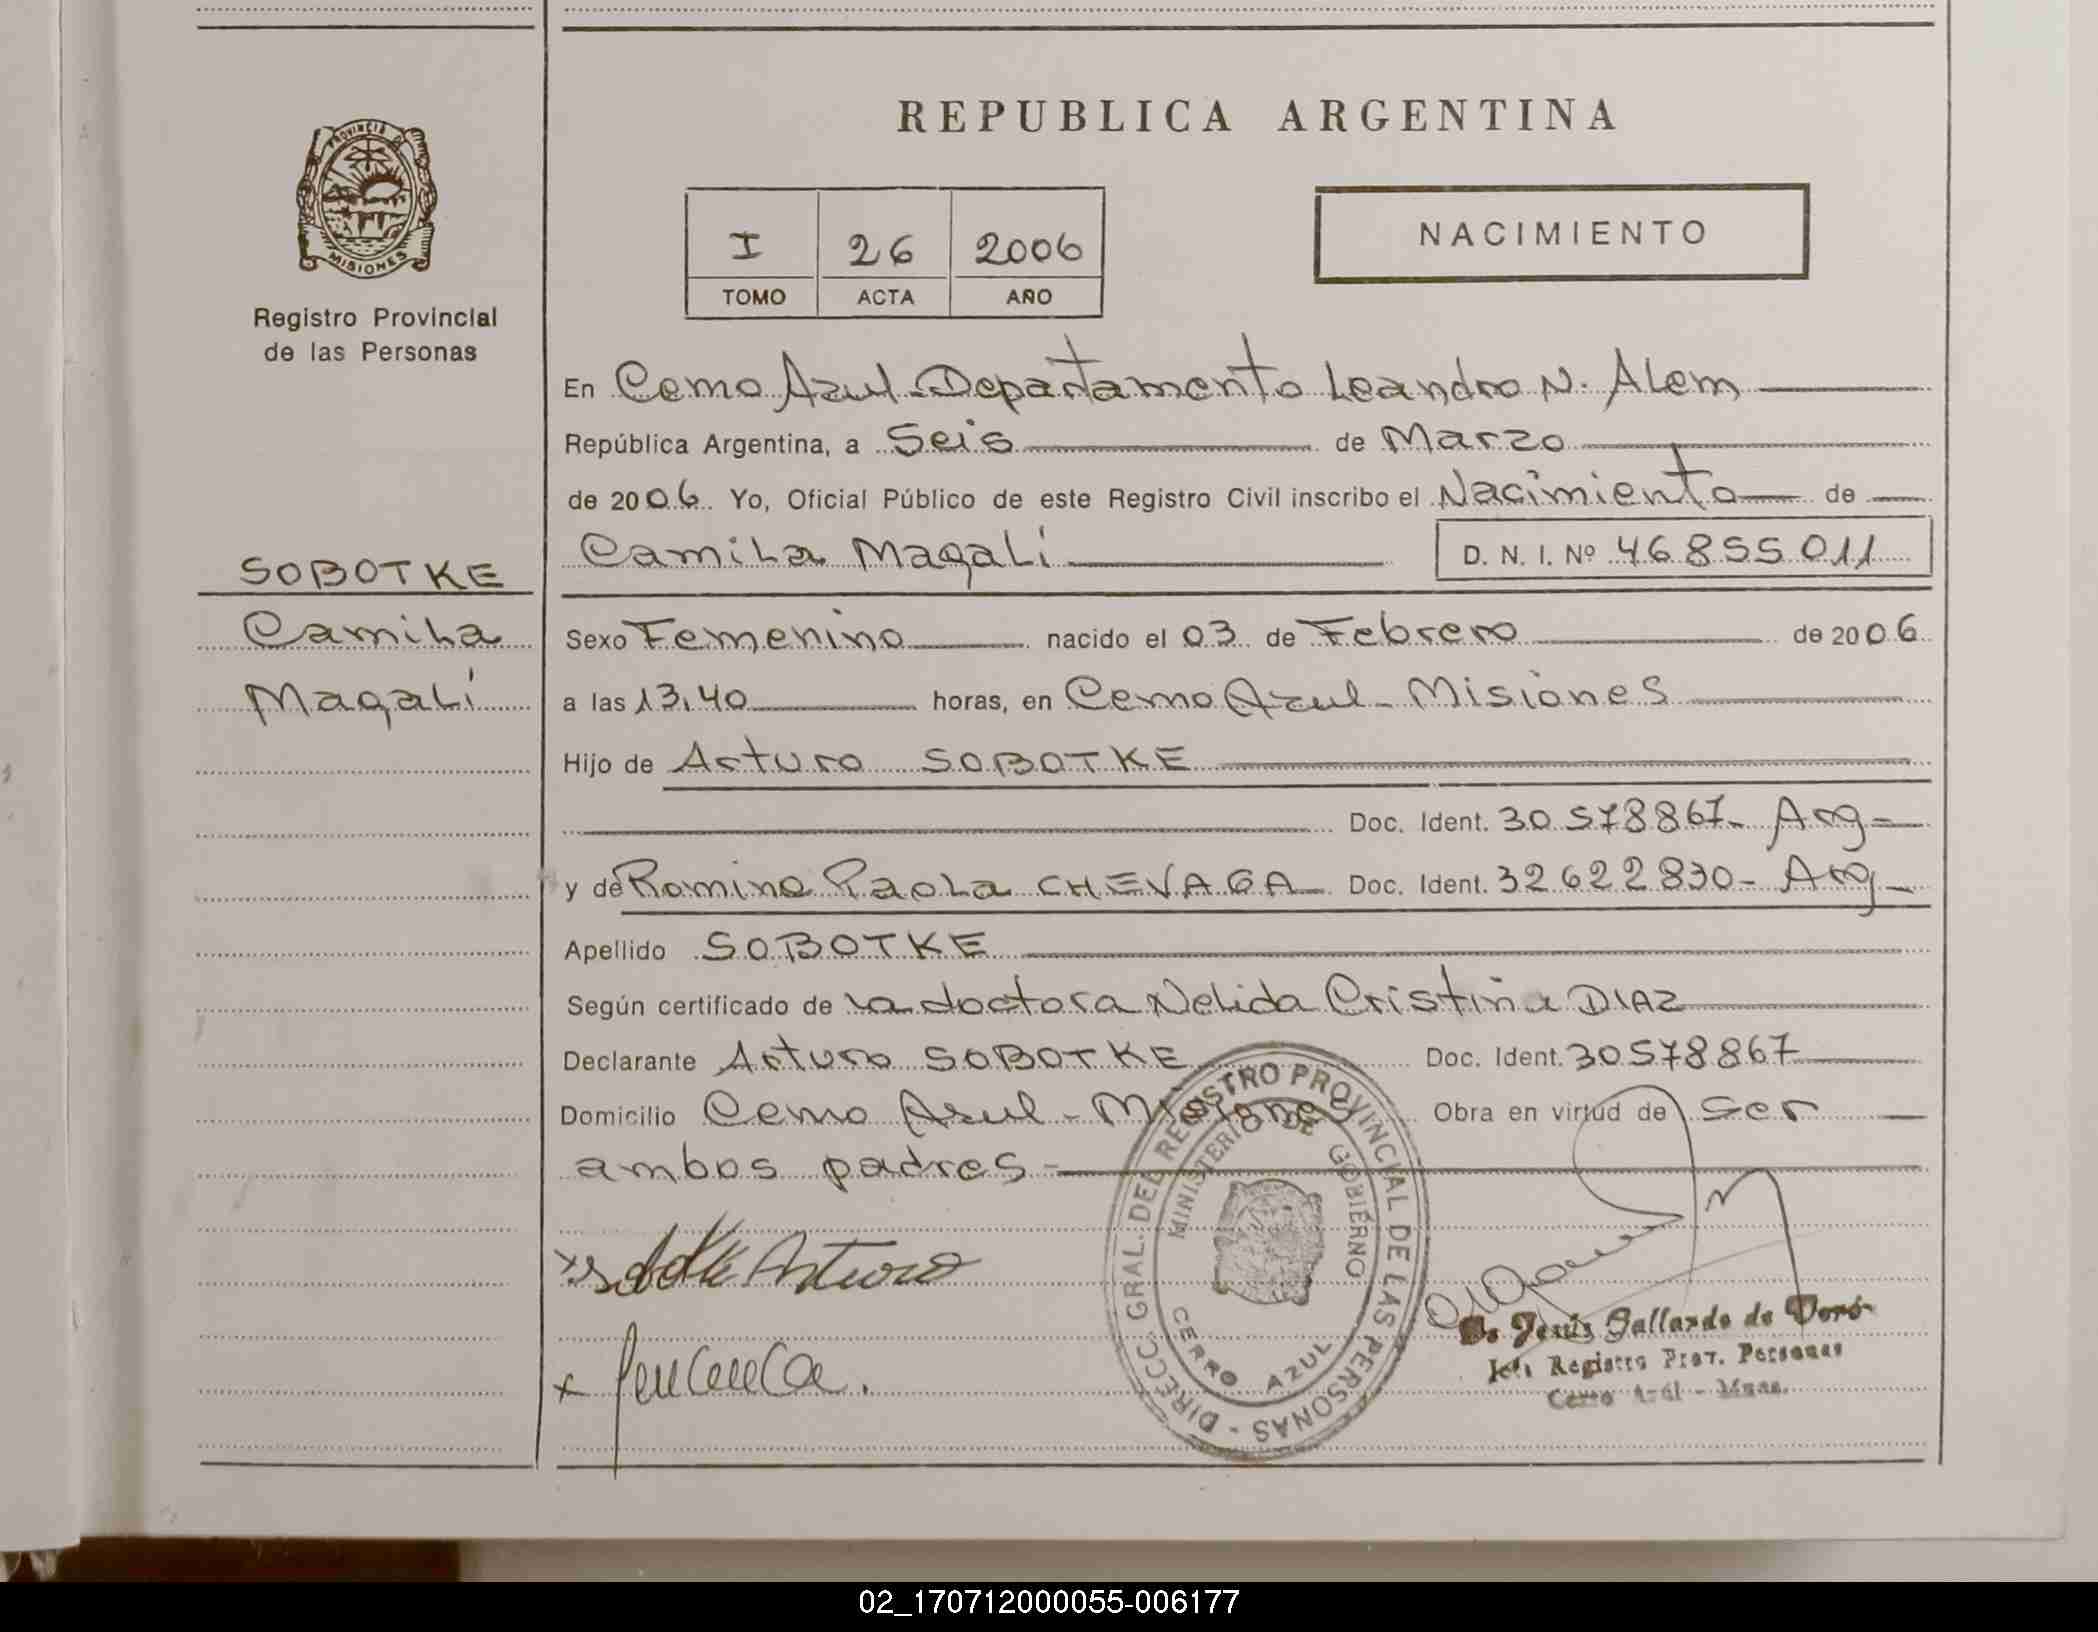 REPUBLICA ARGENTINA
PROVINCIA D
MISIONES
Registro Provincial
de las Personas
I 26 2006
TOMO ACTA AÑO
NACIMIENTO
En Cerro Azul - Departamento Leandro N. Alem
República Argentina, a Seis de Marzo
de 2006. Yo, Oficial Público de este Registro Civil inscribo el Nacimiento de
Camila Magali D. N. I. Nº 46.855.011
SOBOTKE
Camila
Magalí
Sexo Femenino nacido el 03 de Febrero de 2006
a las 13,40 horas, en Cerro Azul - Misiones
Hijo de Arturo SOBOTKE
Doc. Ident. 30.578.867- Arg-
y de Romina Paola CHEVAGA Doc. Ident. 32.622.830- Arg-
Apellido SOBOTKE
Según certificado de la doctora Nelida Cristina DIAZ
Declarante Arturo SOBOTKE Doc. Ident. 30578867
Domicilio Cerro Azul - Misiones Obra en virtud de ser
ambos padres -
Arturo
DIRECC. GRAL. DEL REGISTRO PROVINCIAL DE LAS PERSONAS -
MINISTERIO DE GOBIERNO
CERRO AZUL
Jesús Gallardo de
Registro Prov. Personas
Cerro Azul - Mnes.
02_170712000055-006177